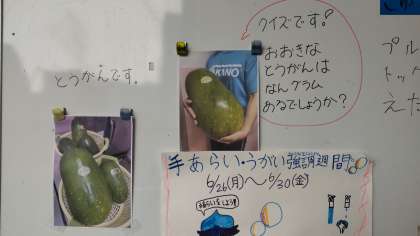 クイズです!
おおきな
とうがんは
なんグラム
あるでしょうか?
とうがんです。
プル
トッ
えた
手あらい・うがい強調週間
6/26(月)～6/30(金)